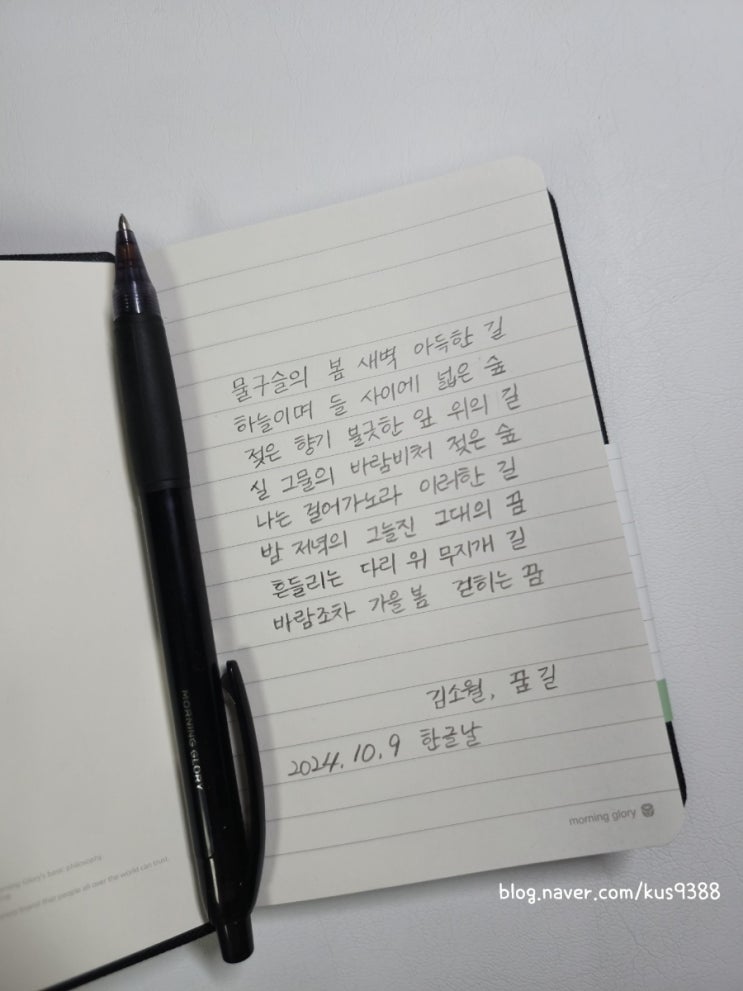 물구슬의 봄 새벽 아득한 길
하늘이며 들 사이에 넓은 숲
젖은 향기 불긋한 잎 위의 길
실 그물의 바람비쳐 젖은 숲
나는 걸어가노라 이러한 길
밤 저녁의 그늘진 그대의 꿈
흔들리는 다리 위 무지개 길
바람조차 가을 봄 걷히는 꿈
김소월, 꿈길
2024.10.9 한글날
morning glory
MORNING GLORY
brand that people all over the world can trust.
blog.naver.com/kus9388